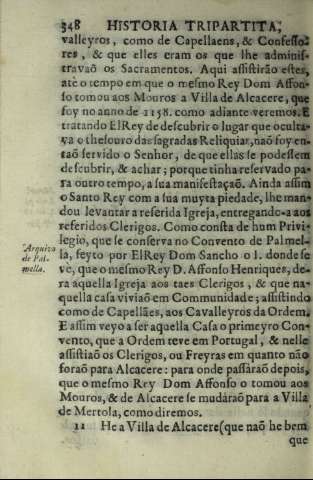 348 HISTORIA TRIPARTITA,
valleyros, como de Capellaens, & Confesso-
res, & que elles eram os que lhe adminis-
travaõ os Sacramentos. Aqui assistirão estes,
atè o tempo em que o mesmo Rey Dom Affon-
so tomou aos Mouros a Villa de Alcacere, que
foy no anno de 1158. como adiante veremos. E
tratando ElRey de descubrir o lugar que oculta-
va o thesouro das sagradas Reliquias, naõ foy en-
taõ servido o Senhor, de que ellas se podessem
descubrir, & achar; porque tinha reservado pa-
ra outro tempo, a sua manifestaçaõ. Ainda assim
o Santo Rey com a sua muyta piedade, lhe man-
dou levantar a referida Igreja, entregando-a aos
referidos Clerigos. Como consta de hum Privi-
legio, que se conserva no Convento de Palmel-
Arquivo de Pal-mella.
la, feyto por ElRey Dom Sancho o I. donde se
ve, que o mesmo Rey D. Affonso Henriques, de-
ra aquella Igreja aos taes Clerigos, & que na-
quella casa viviaõ em Communidade; assistindo
como de Capellães, aos Cavalleyros da Ordem.
E assim veyo a ser aquella Casa o primeyro Con-
vento, que a Ordem teve em Portugal, & nelle
assistiaõ os Clerigos, ou Freyras em quanto não
foraõ para Alcacere: para onde passàraõ depois,
que o mesmo Rey Dom Affonso o tomou aos
Mouros, & de Alcacere se mudàraõ para a Villa
de Mertola, como diremos.
11 He a Villa de Alcacere (que naõ he bem
que